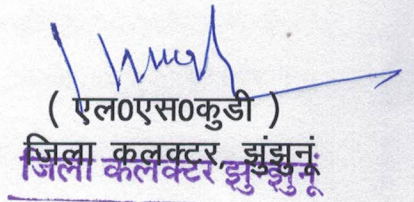 ( एल0एस0कुडी )
जिला कलक्टर, झुंझुनूं
जिला कलक्टर झुन्झुनूं